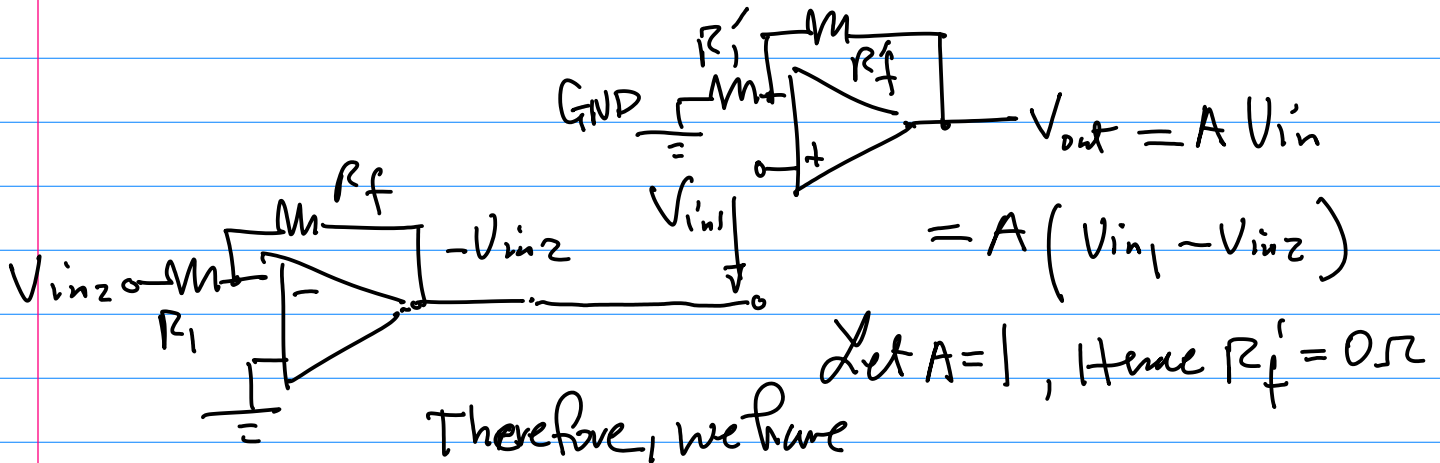 R₁′
Rf′
GND
Vout = A Vin
+
Rf
Vin1
-Vin2
= A (Vin1 - Vin2)
Vin2
-
R1
Let A = 1, Hence Rf′ = 0Ω
Therefore, we have